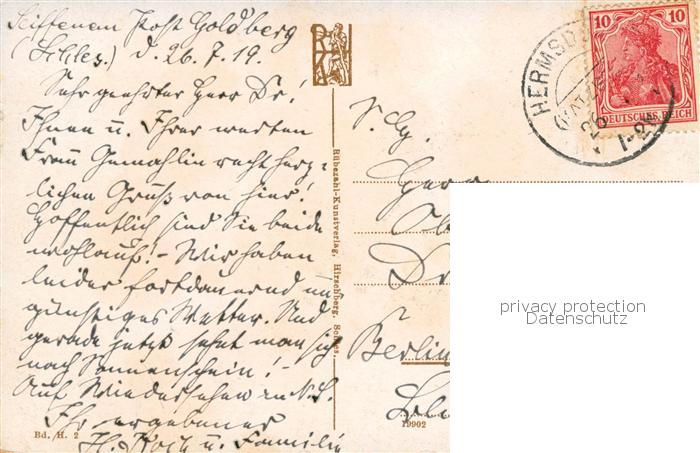 Seiffenau Post Goldberg
(Schles.) d. 26.7.19.
Sehr geehrter Herr Dr.!
Ihnen u. Ihrer werten
Frau Gemahlin recht herz-
lichen Gruß von hier!
Hoffentlich sind Sie beide
wohlauf! - Wir haben
leider fortdauernd un
günstiges Wetter. Und
gerade jetzt sehnt man sich
nach Sonnenschein! -
Auf Wiedersehen
Ihr ergebener
H. Koch u. Familie
Bd. H. 2
Rübezahl-Kunstverlag, Hirschberg, Schles.
S. Hg.
Herr
Ob
Dr
Berlin
19902
HERMSD
26
10 10
DEUTSCHES REICH
privacy protection
Datenschutz